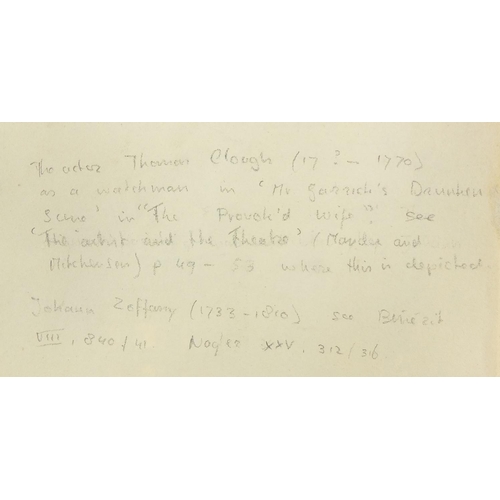 The actor Thomas Clough (17 ? - 1770)
as a watchman in 'Mr Garrick's Drunken
Scene' in "The Provok'd Wife" see
'The artist and the Theatre' (Mander and
Mitchenson) p 49 - 53 where this is depicted.
Johann Zoffany (1733 - 1810) see Bénézit
VIII, 840/41 Nagler XXV. 312/316